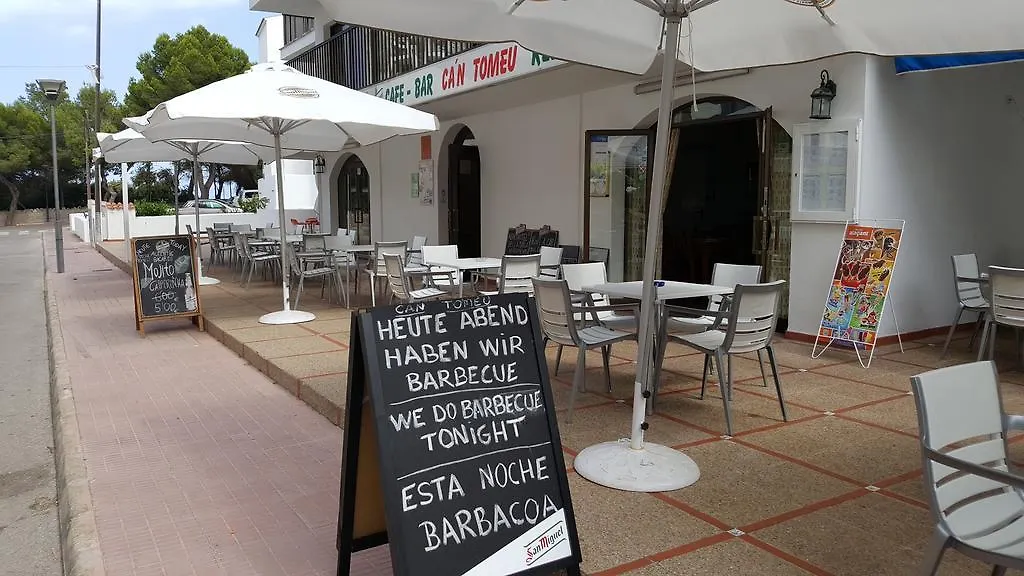 CAFE - BAR CA'N TOMEU
CAN TOMEU
HEUTE ABEND
HABEN WIR
BARBECUE
WE DO BARBECUE
TONIGHT
ESTA NOCHE
BARBACOA
San Miguel
MOJITO
CAIPIRINHA
5'00